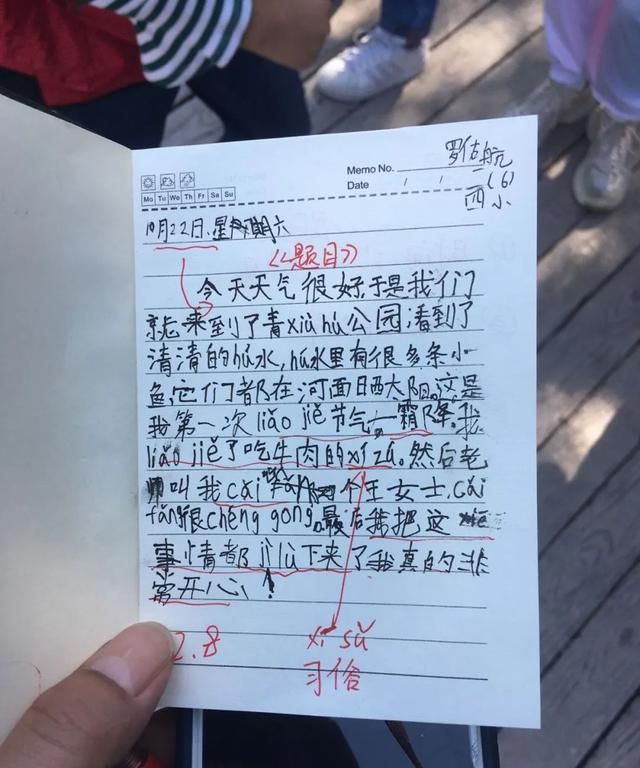 Memo No.
罗佑航
Mo Tu We Th Fr Sa Su
Date / /
(6)
四小
10月22日、星期六
《题目》
今天天气很好,于是我们
就来到了青xiù hú公园,看到了
清清的hú水,hú水里有很多条小
鱼,它们都在河面晒太阳。这是
我第一次liǎo jiě节气——霜降。我
liǎo jiě了吃牛肉的xí zú。然后老
师叫我cǎi fǎng一个王女士,cǎi
fǎng很chéng gōng。最后我把这
事情都jì lù下来了我真的非
常开心!
2.8
xí sú
习俗